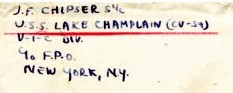 J.F. CHIPSER S1/c
U.S.S. LAKE CHAMPLAIN (CV-39)
V-1-C DIV.
c/o F.P.O.
NEW YORK, N.Y.